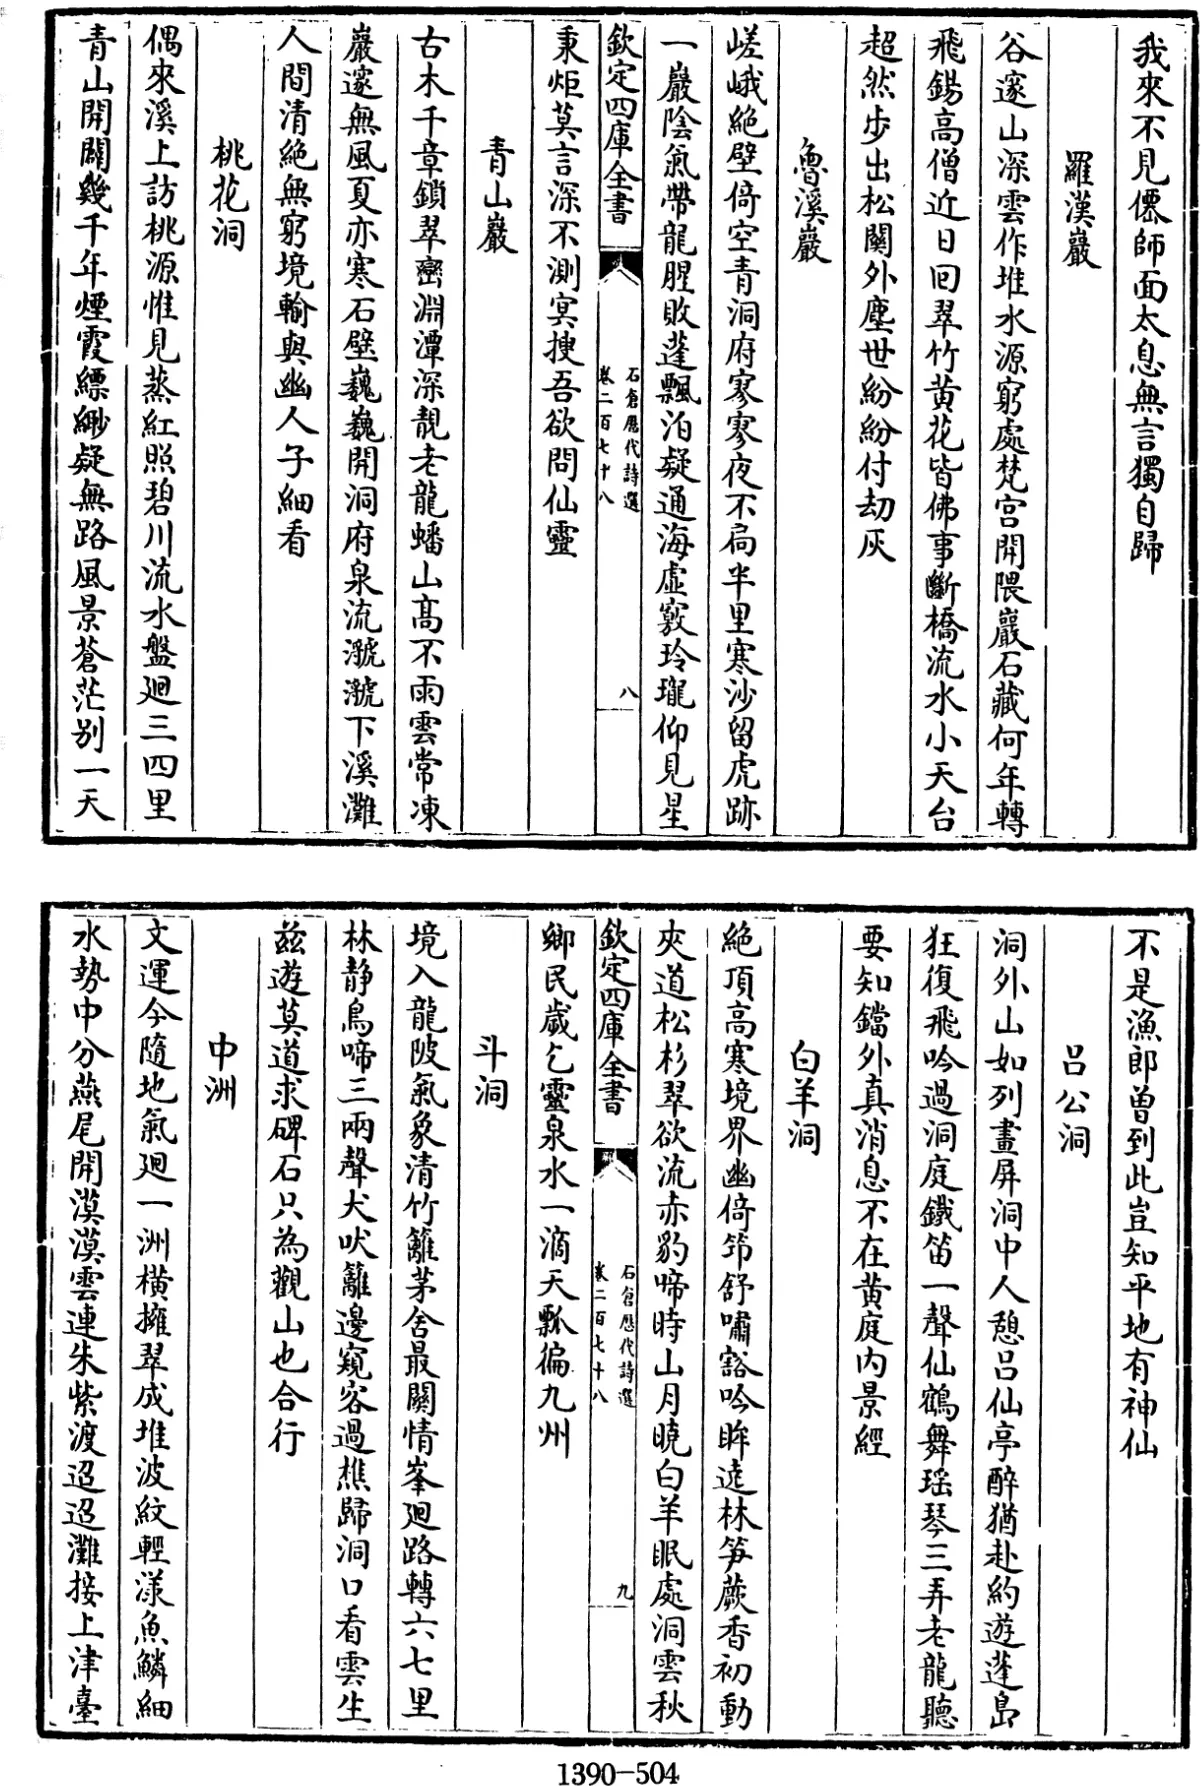 我來不見僊師面太息無言獨自歸
羅漢巖
谷邃山深雲作堆水源窮處梵宮開隈巖石藏何年轉
飛錫高僧近日囘翠竹黄花皆佛事斷橋流水小天台
超然步出松關外塵世紛紛付劫灰
魯溪巖
嵯峨絶壁倚空青洞府寥寥夜不扃半里寒沙留虎跡
一巖陰氣帶龍腥敗蓬飄泊疑通海虛竅玲瓏仰見星
欽定四庫全書
石倉歷代詩選
卷二百七十八
八
秉炬莫言深不測冥搜吾欲問仙靈
青山巖
古木千章鎖翠巒淵潭深靚老龍蟠山髙不雨雲常凍
巖邃無風夏亦寒石壁巍巍開洞府泉流㶁㶁下溪灘
人間清絶無窮境輸與幽人子細看
桃花洞
偶來溪上訪桃源惟見蒸紅照碧川流水盤廻三四里
青山開闢幾千年煙霞縹緲疑無路風景蒼茫别一天
不是漁郎曽到此豈知平地有神仙
吕公洞
洞外山如列畫屏洞中人憩吕仙亭醉猶赴約遊蓬島
狂復飛吟過洞庭鐵笛一聲仙鶴舞瑶琴三弄老龍聽
要知鐺外真消息不在黄庭内景經
白羊洞
絶頂高寒境界幽倚笻舒嘯豁吟眸遶林笋蕨香初動
夾道松杉翠欲流赤豹啼時山月曉白羊眠處洞雲秋
欽定四庫全書
石倉歷代詩選
卷二百七十八
九
鄉民歲乞靈泉水一滴天瓢徧九州
斗洞
境入龍陂氣象清竹籬茅舍最關情峯廻路轉六七里
林静鳥啼三兩聲犬吠籬邊窺客過樵歸洞口看雲生
兹遊莫道求碑石只為觀山也合行
中洲
文運今隨地氣廻一洲橫擁翠成堆波紋輕漾魚鱗細
水勢中分燕尾開漠漠雲連朱紫渡迢迢灘接上津臺
1390-504